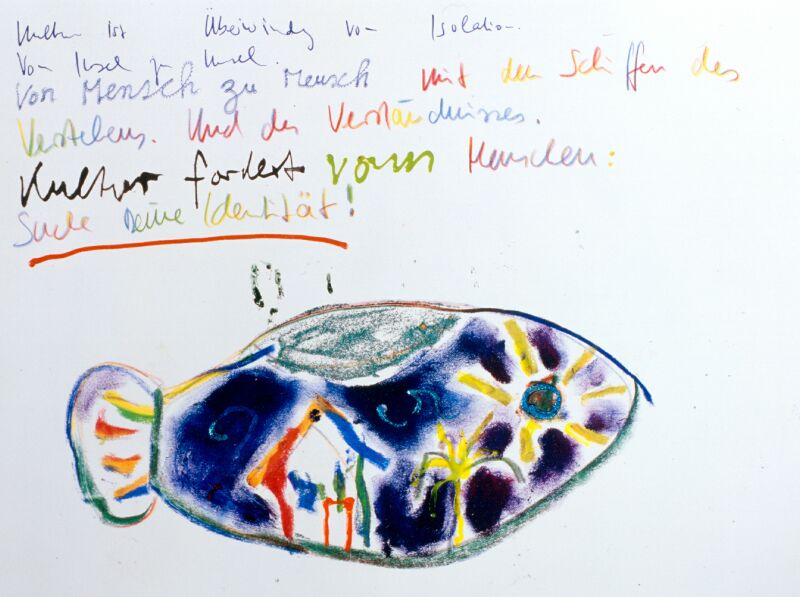 Kultur ist Überwindung von Isolation.
Von Insel zu Insel.
Von Mensch zu Mensch mit den Schiffen des
Verstehens. Und des Verständnisses.
Kultur fordert vom Menschen:
Suche Deine Identität!